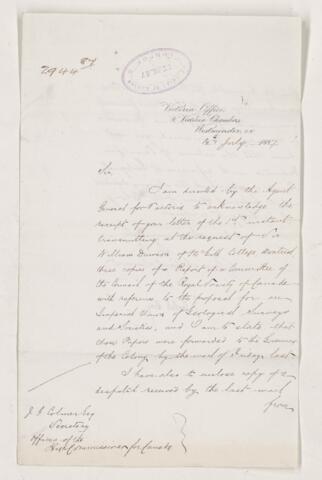 2944/87
Victoria Office,
8 Victoria Chambers
Westminster, S.W.
12th July 1887
Sir
I am directed by the Agent
General for Victoria to acknowledge the
receipt of your letter of the 1st instant
transmitting at the request of Sir
William Dawson of McGill College Montreal
three copies of a Report of a Committee of
the Council of the Royal Society of Canada
with reference to the proposal for an
Imperial Union of Geological Surveys
and Societies, and I am to state that
these Papers were forwarded to the Governor
of the Colony by the mail of Friday last
I have also to enclose copy of a
despatch received by the last mail
from
J. G. Colmer Esq
Secretary
Office of the
High Commissioner for Canada